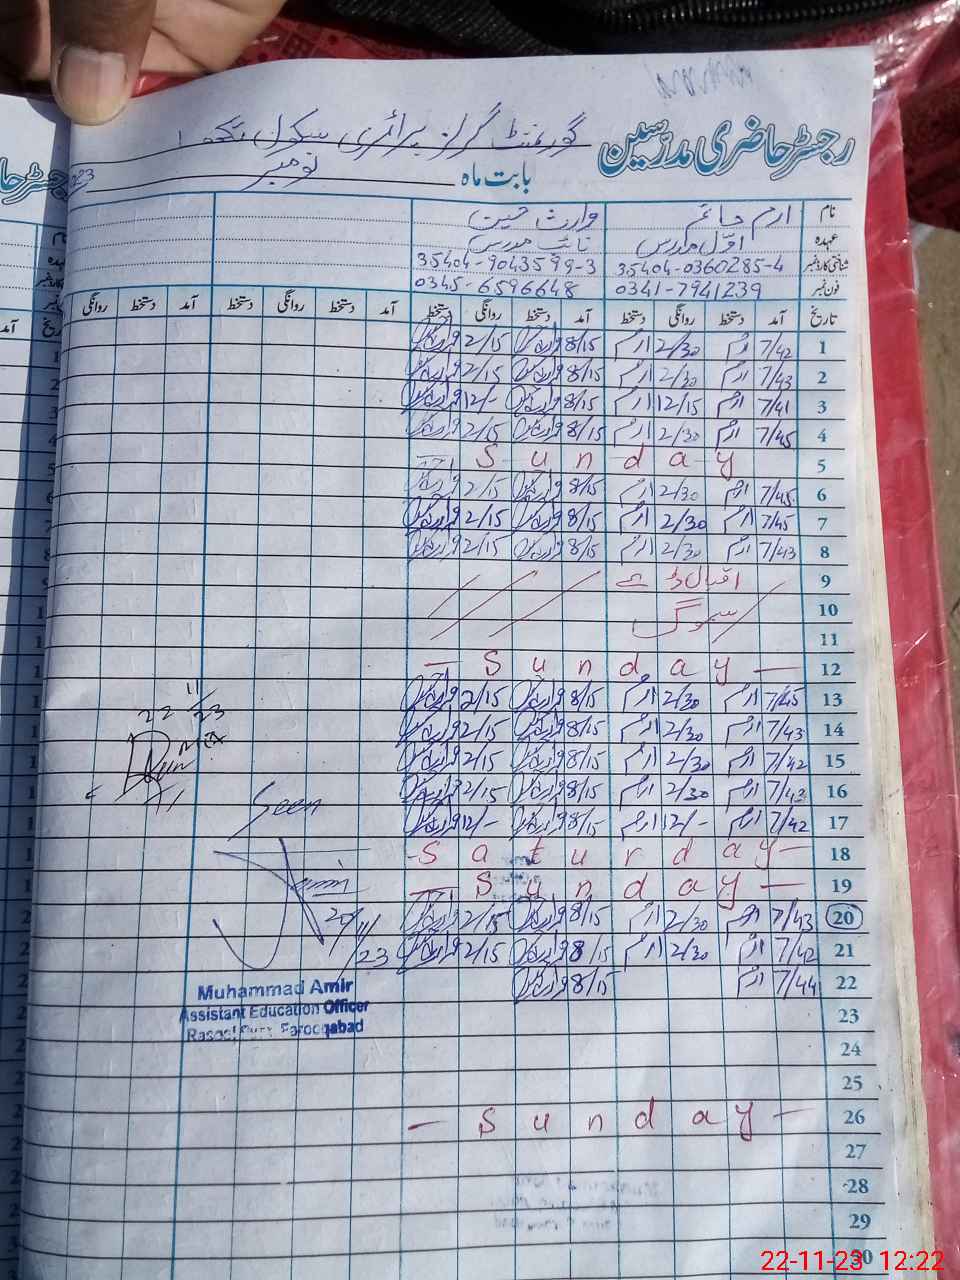 گورنمنٹ گرلز پرائمری سکول
رجسٹر حاضری مدرسین
بابت ماہ نومبر
نام ارم وارث
عہدہ اول مدرس نائب مدرس
شناختی کارڈ نمبر 35404-0360285-4 35404-9043599-3
فون نمبر 0341-7941239 0345-6596648
تاریخ آمد دستخط روانگی دستخط آمد دستخط روانگی دستخط آمد دستخط روانگی دستخط آمد دستخط روانگی
1 7/42 ارم 2/30 ارم 8/15 وارث 2/15 وارث
2 7/43 ارم 2/30 ارم 8/15 وارث 2/15 وارث
3 7/41 ارم 12/15 ارم 8/15 وارث 12/- وارث
4 7/45 ارم 2/30 ارم 8/15 وارث 2/15 وارث
5 Sunday
6 7/45 ارم 2/30 ارم 8/15 وارث 2/15 وارث
7 7/45 ارم 2/30 ارم 8/15 وارث 2/15 وارث
8 7/43 ارم 2/30 ارم 8/15 وارث 2/15 وارث
9 اقبال ڈے
10 سموگ
11
12 — Sunday —
13 7/45 ارم 2/30 ارم 8/15 وارث 2/15 وارث
14 7/43 ارم 2/30 ارم 8/15 وارث 2/15 وارث
15 7/42 ارم 2/30 ارم 8/15 وارث 2/15 وارث
16 7/43 ارم 2/30 ارم 8/15 وارث 2/15 وارث
17 7/42 ارم 12/- ارم 8/15 وارث 12/- وارث
18 -Saturday-
19 — Sunday —
20 7/43 ارم 2/30 ارم 8/15 وارث 2/15 وارث
21 7/42 ارم 2/30 ارم 8/15 وارث 2/15 وارث
22 7/44 ارم 8/15 وارث
23
24
25
26 — Sunday —
27
28
29
30
22/11/23
Seen
20/11/23
Muhammad Amir
Assistant Education Officer
Farooqabad
22-11-23 12:22